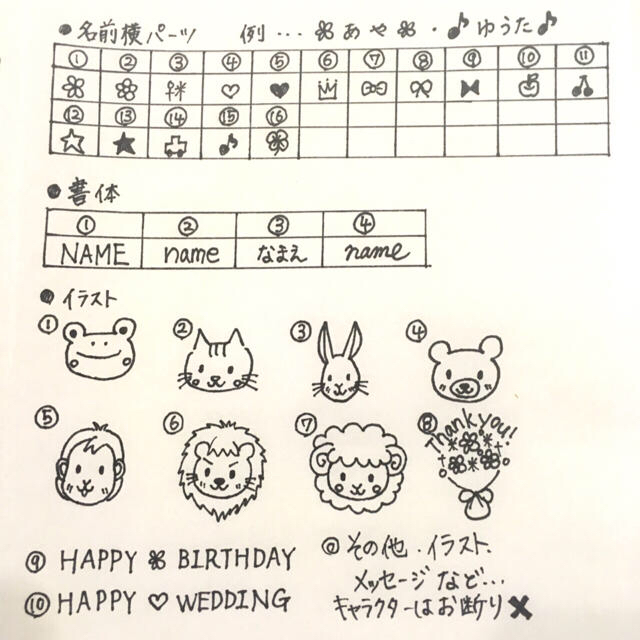 ●名前横パーツ 例… あや・ゆうた
① ② ③ ④ ⑤ ⑥ ⑦ ⑧ ⑨ ⑩ ⑪
⑫ ⑬ ⑭ ⑮ ⑯
●書体
① ② ③ ④
NAME name なまえ name
●イラスト
① ② ③ ④
⑤ ⑥ ⑦ ⑧ Thank you!
⑨ HAPPY BIRTHDAY
⑩ HAPPY ♡ WEDDING
@その他.イラスト.
メッセージなど…
キャラクターはお断り✖